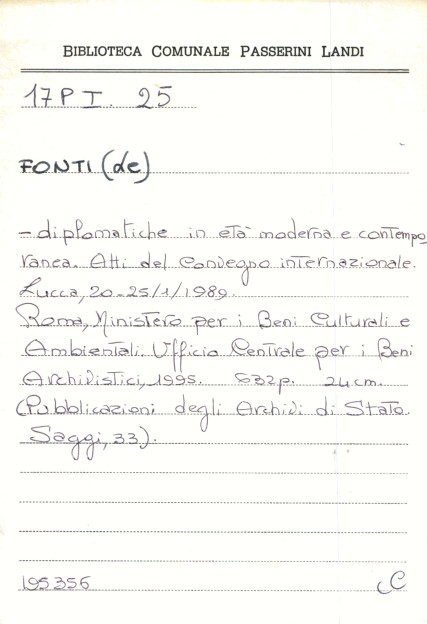 BIBLIOTECA COMUNALE PASSERINI LANDI
17 P I. 25
FONTI (de)
- diplomatiche in età moderna e contempo
ranea. Atti del Convegno internazionale.
Lucca, 20-25/1/1989.
Roma, Ministero per i Beni Culturali e
Ambientali. Ufficio Centrale per i Beni
Archivistici, 1995. 632p. 24cm.
(Pubblicazioni degli Archivi di Stato.
Saggi, 33).
195356 C